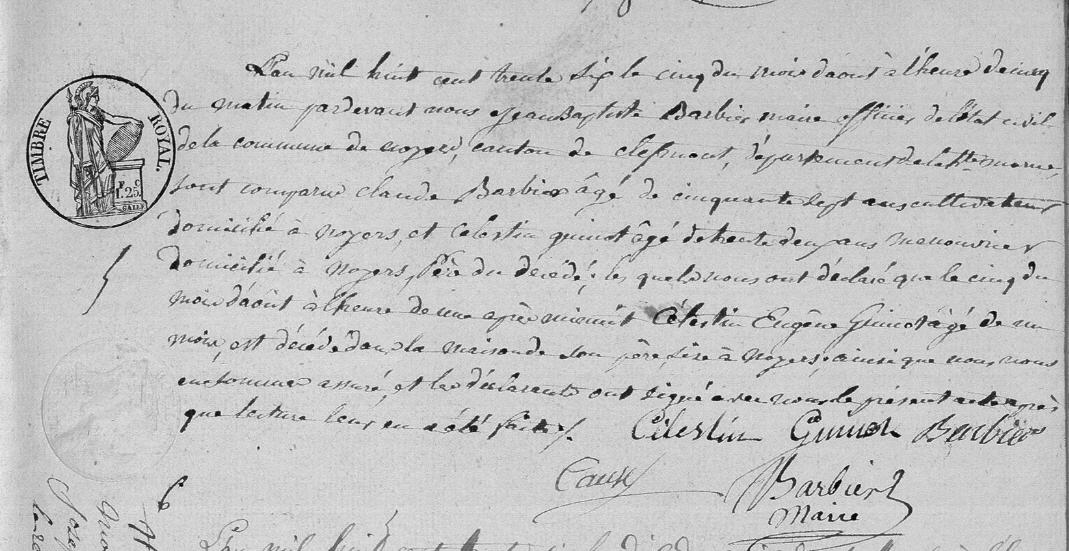 L'an mil huit cent trente six le cinq du mois d'aout à l'heure de cinq
du matin par devant nous Jean Baptiste Barbier maire officier de l'état civil
de la commune de noyers, canton de clefmont, département de la hte marne,
sont comparu claude Barbier âgé de cinquante sept ans cultivateur
domicilié à noyers, et Celestin guinot âgé de trente deux ans manouvrier
domicilié à noyers, père du décédé; les quels nous ont déclaré que le cinq du
mois d'août à l'heure de une après minuit Célestin Eugène Guinot âgé de un
mois, est décédé dans la maison de son père sise à noyers, ainsi que nous nous
en sommes assuré, et les déclarants ont signé avec nous le présent acte après
que lecture leur en a été faite.
Célestin Guinot Barbier
Barbier
Maire
TIMBRE ROYAL.
F. C.
1.25
5
6